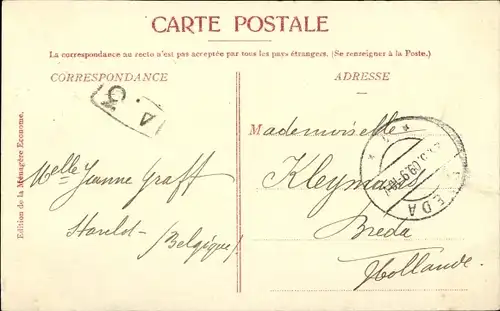 CARTE POSTALE
La correspondance au recto n'est pas acceptée par tous les pays étrangers. (Se renseigner à la Poste.)
CORRESPONDANCE
ADRESSE
Edition de la Ménagère Econome.
Melle Jeanne Graff
(Belgique)
Mademoiselle
Breda
Hollande.
BREDA